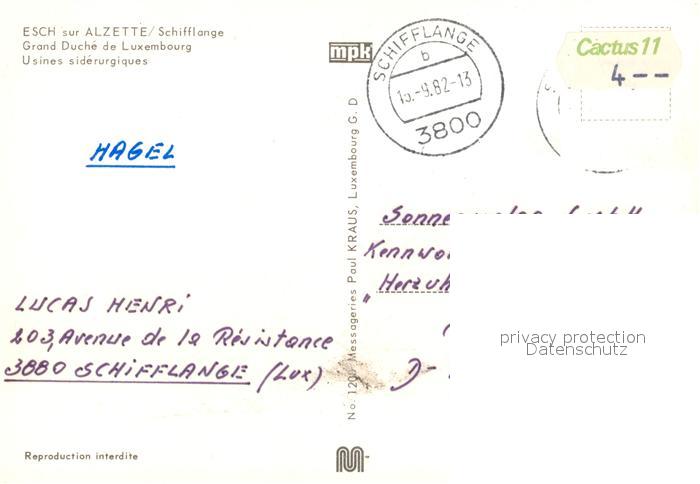 ESCH sur ALZETTE/Schifflange
Grand Duché de Luxembourg
Usines sidérurgiques
mpk
SCHIFFLANGE
b
-9.82-13
3800
Cactus 11
4--
HAGEL
LUCAS HENRI
203, Avenue de la Résistance
3880 SCHIFFLANGE (Lux)
Messageries Paul KRAUS, Luxembourg G. D
D-
privacy protection
Datenschutz
Reproduction interdite